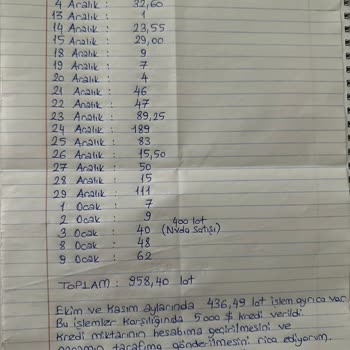 4 Aralık : 32,60
13 Aralık : 1
14 Aralık : 23,55
15 Aralık : 29,00
18 Aralık : 9
19 Aralık : 7
20 Aralık : 4
21 Aralık : 46
22 Aralık : 47
23 Aralık : 89,25
24 Aralık : 189
25 Aralık : 83
26 Aralık : 15,50
27 Aralık : 50
28 Aralık : 15
29 Aralık : 111
1 Ocak : 7
2 Ocak : 9 400 lot
3 Ocak : 40 (Nvda Satışı)
8 Ocak : 48
9 Ocak : 62
TOPLAM : 958,40 lot
Ekim ve Kasım aylarında 436,49 lot işlem ayrıca var.
Bu işlemler karşılığında 5000 $ kredi verildi.
Kredi miktarının hesabıma geçirilmesini ve
tarafıma gönderilmesini rica ediyorum.